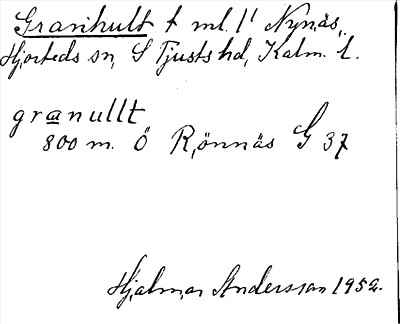 Granhult t ml. l' Nynäs,
Hjorteds sn, S Tjusts hd, Kalm. l.
granullt
800 m. Ö Rönnäs G 37
Hjalmar Andersson 1952.